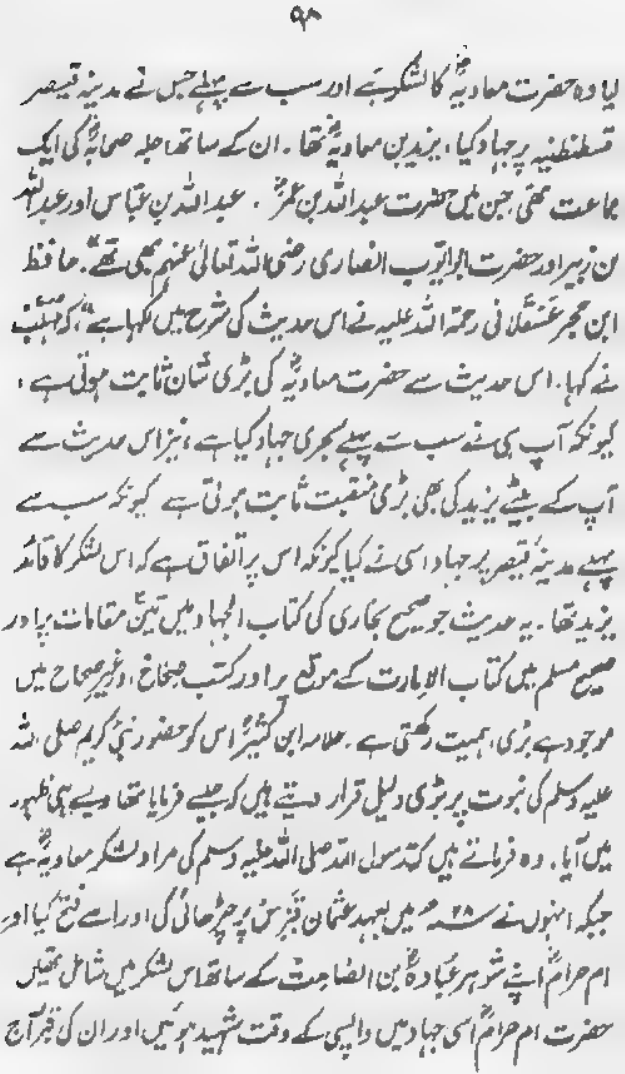 ۹۸
لیا وہ حضرت معاویہؓ کا لشکر ہے اور سب سے پہلے جس نے مدینہ قیصر
قسطنطنیہ پر جہاد کیا، یزید بن معاویہؓ تھا۔ ان کے ساتھ جلہ صحابہؓ کی ایک
جماعت تھی جن میں حضرت عبداللہ بن عمرؓ۔ عبداللہ بن عباس اور عبداللہ
بن زبیر اور حضرت ابوایوب انصاری رضی اللہ تعالیٰ عنہم بھی تھے"۔ حافظ
ابن حجر عسقلانی رحمۃ اللہ علیہ نے اس حدیث کی شرح میں لکھا ہے"، کہ مہلّب
نے کہا، اس حدیث سے حضرت معاویہؓ کی بڑی شان ثابت ہوتی ہے،
کیونکہ آپ ہی نے سب سے پہلے بحری جہاد کیا ہے، نیز اس حدیث سے
آپ کے بیٹے یزید کی بھی بڑی منقبت ثابت ہوتی ہے کیونکہ سب سے
پہلے مدینہ قیصر پر جہاد اسی نے کیا کیونکہ اس پر اتفاق ہے کہ اس لشکر کا قائد
یزید تھا۔ یہ حدیث جو صحیح بخاری کی کتاب الجہاد میں تین مقامات پر اور
صحیح مسلم میں کتاب الامارت کے موقع پر اور کتب صحاح، وغیر صحاح میں
موجود ہے بڑی اہمیت رکھتی ہے۔ علامہ ابن کثیرؒ اس کو حضور نبی کریم صلی اللہ
علیہ وسلم کی نبوت پر بڑی دلیل قرار دیتے ہیں کہ جیسے فرمایا تھا ویسے ہی ظہور
میں آیا۔ وہ فرماتے ہیں کہ رسول اللہ صلی اللہ علیہ وسلم کی مراد لشکر معاویہؓ ہے
جبکہ انہوں نے ۲۸ھ میں بعہد عثمان قبرس پر چڑھائی کی اور اسے فتح کیا اور
ام حرامؓ اپنے شوہر عبادہؓ بن الصامت کے ساتھ اس لشکر میں شامل تھیں
حضرت ام حرامؓ اسی جہاد میں واپسی کے وقت شہید ہوئیں اور ان کی قبر آج